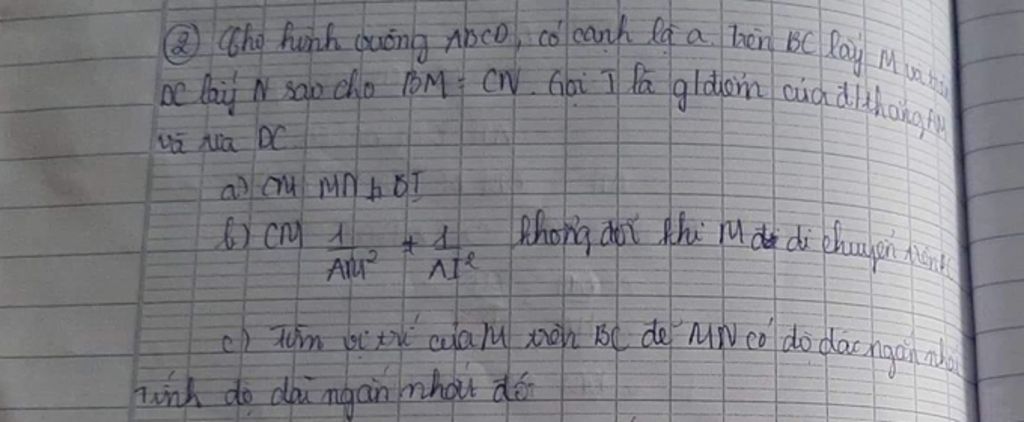 ② Cho hình vuông ABCD, có cạnh là a. Trên BC lấy M và trên
DC lấy N sao cho BM = CN. Gọi I là g/điểm của đ/thẳng AM
và tia DC
a) CM MN ⊥ BI
b) CM 1/AM² + 1/AI² không đổi khi M di chuyển trên
c) Tìm vị trí của M trên BC để MN có độ dài ngắn nhất
Tính độ dài ngắn nhất đó